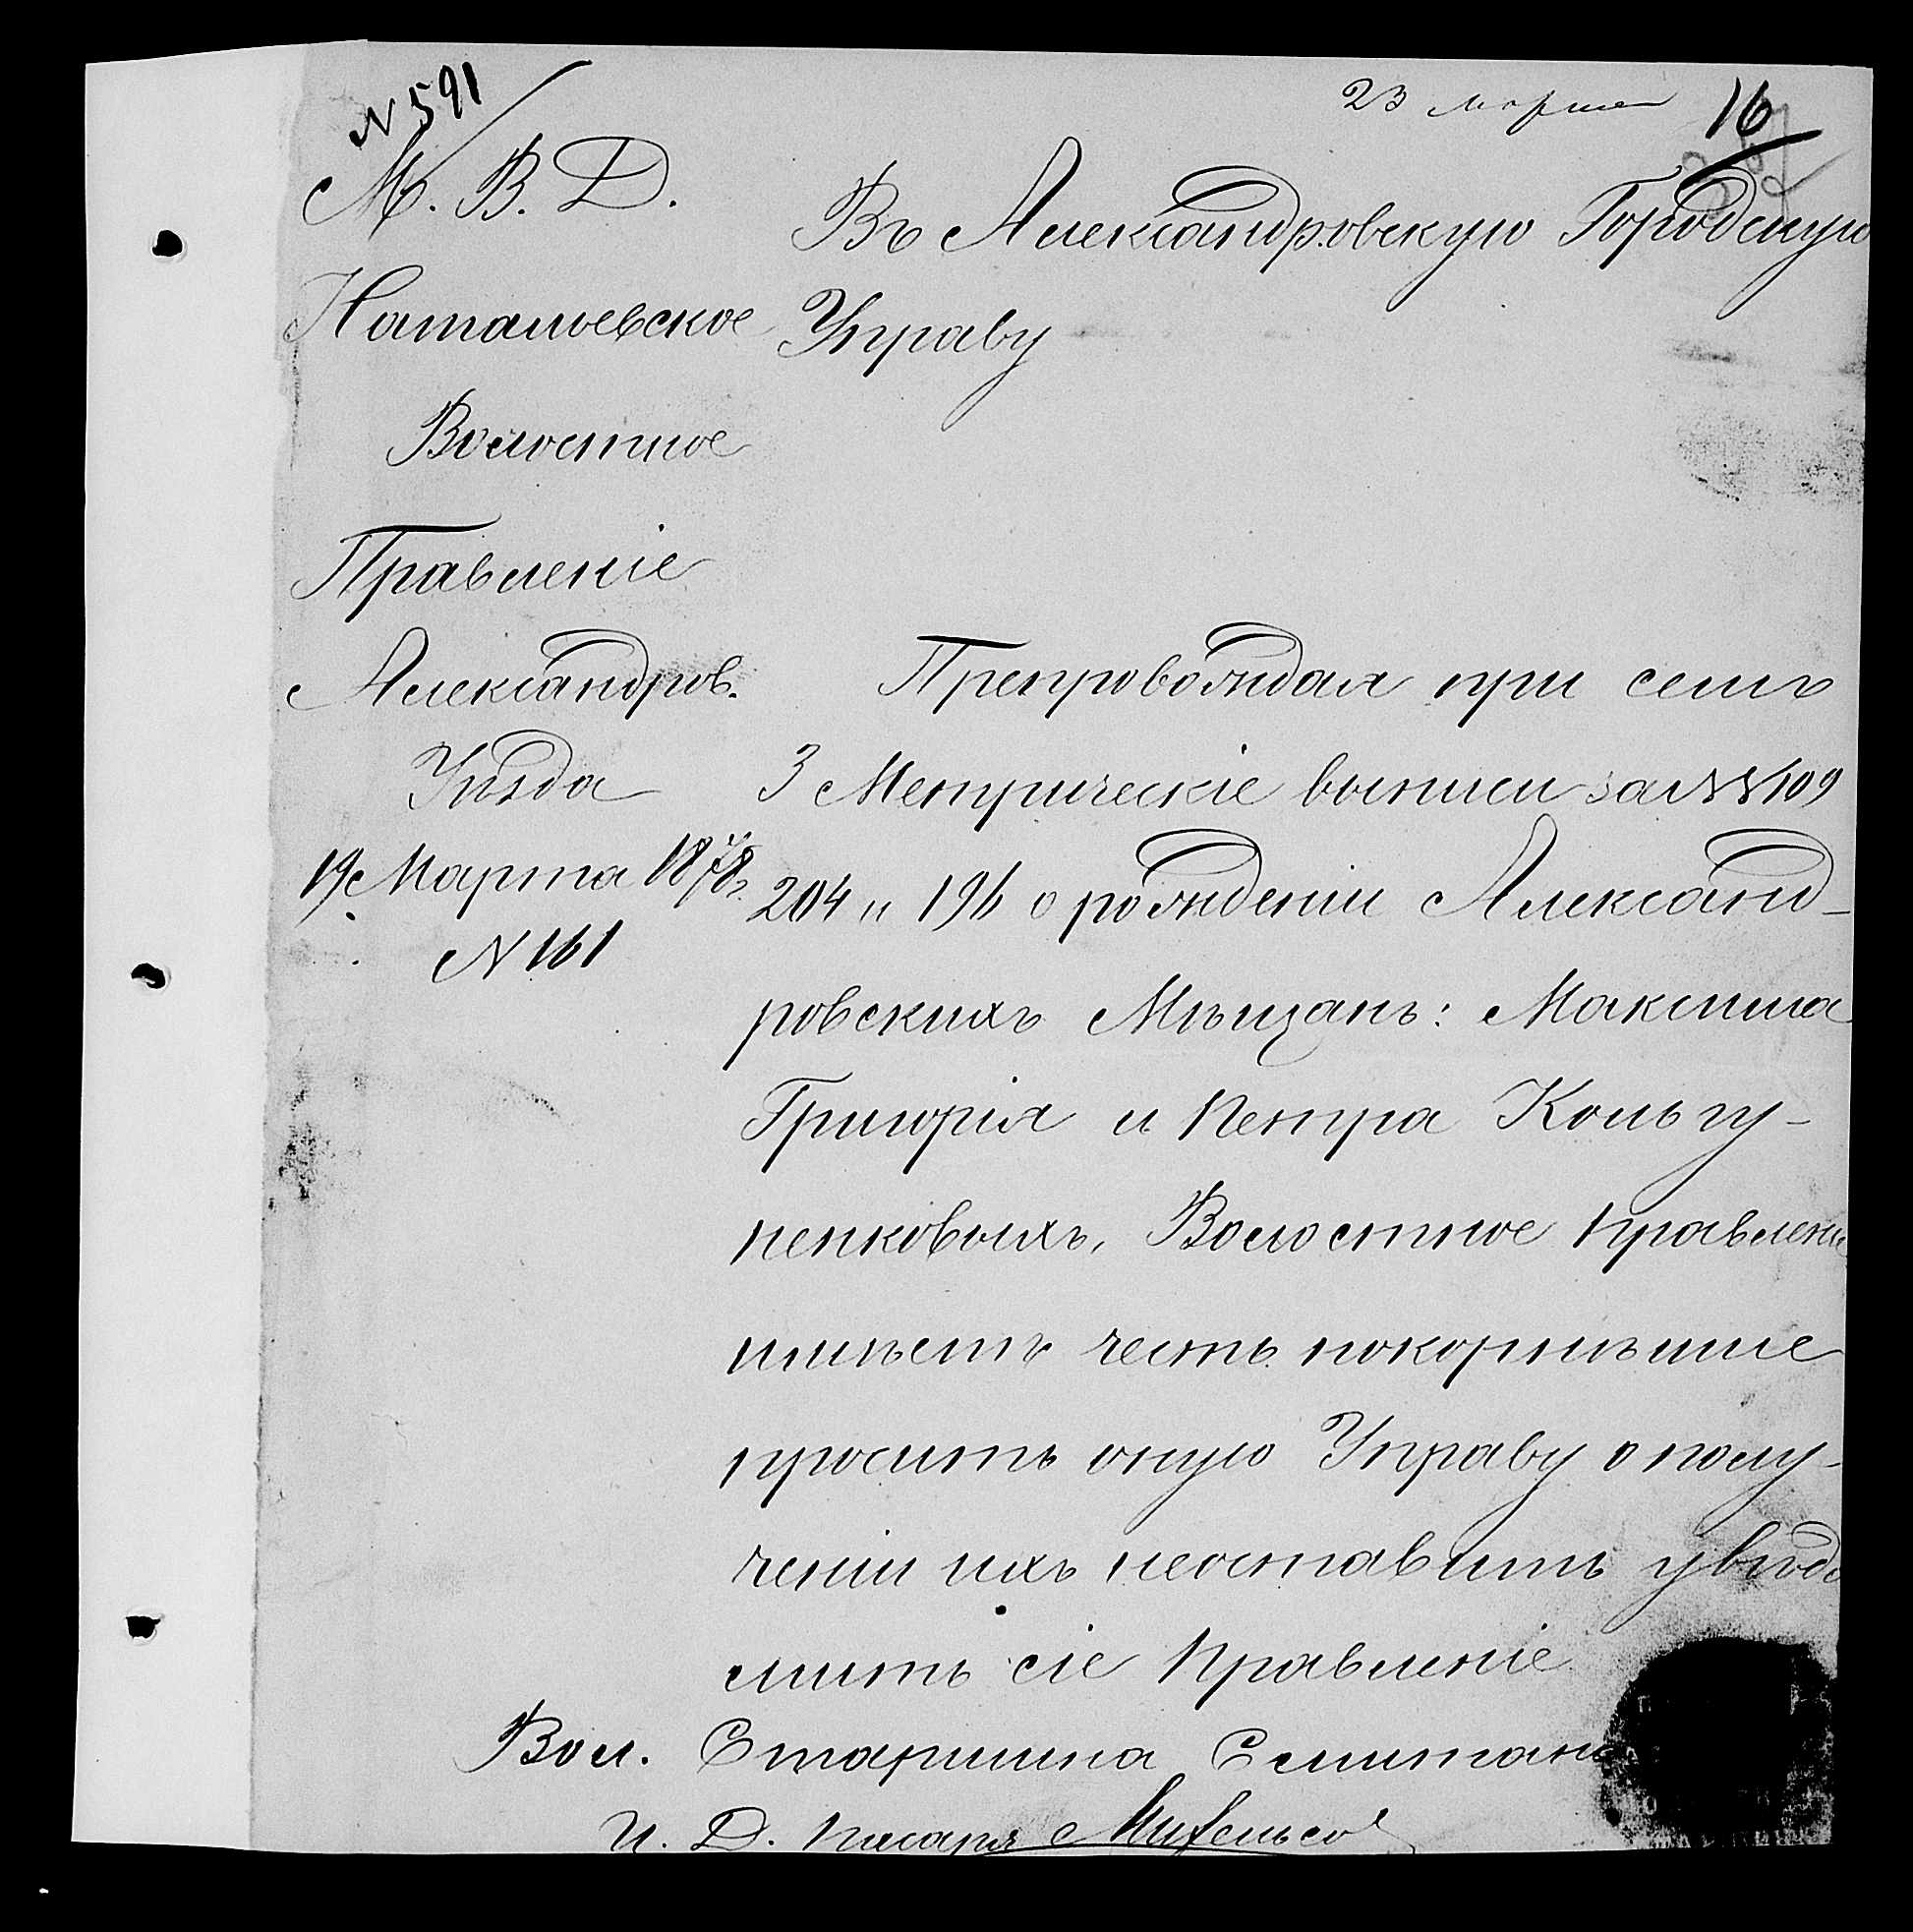 N 591
23 марта
16
М. В. Д.
Натальевское
Волостное
Правленіе
Александров.
Уѣзда
19 Марта 1878 г.
N 161
Въ Александровскую Городскую
Управу
Препровождая при семъ
3 Метрическіе выписи за NN 109
204 и 196 о рожденіи Александ-
ровскихъ Мѣщанъ: Максима
Григорія и Петра Кольгу-
ненковыхъ, Волостное Правлені
имѣетъ честь покорнѣйше
просить оную Управу о полу-
ченіи ихъ неоставить увѣдо
мить сіе Правленіе
Вол. Старшина
И. Д. Писаря